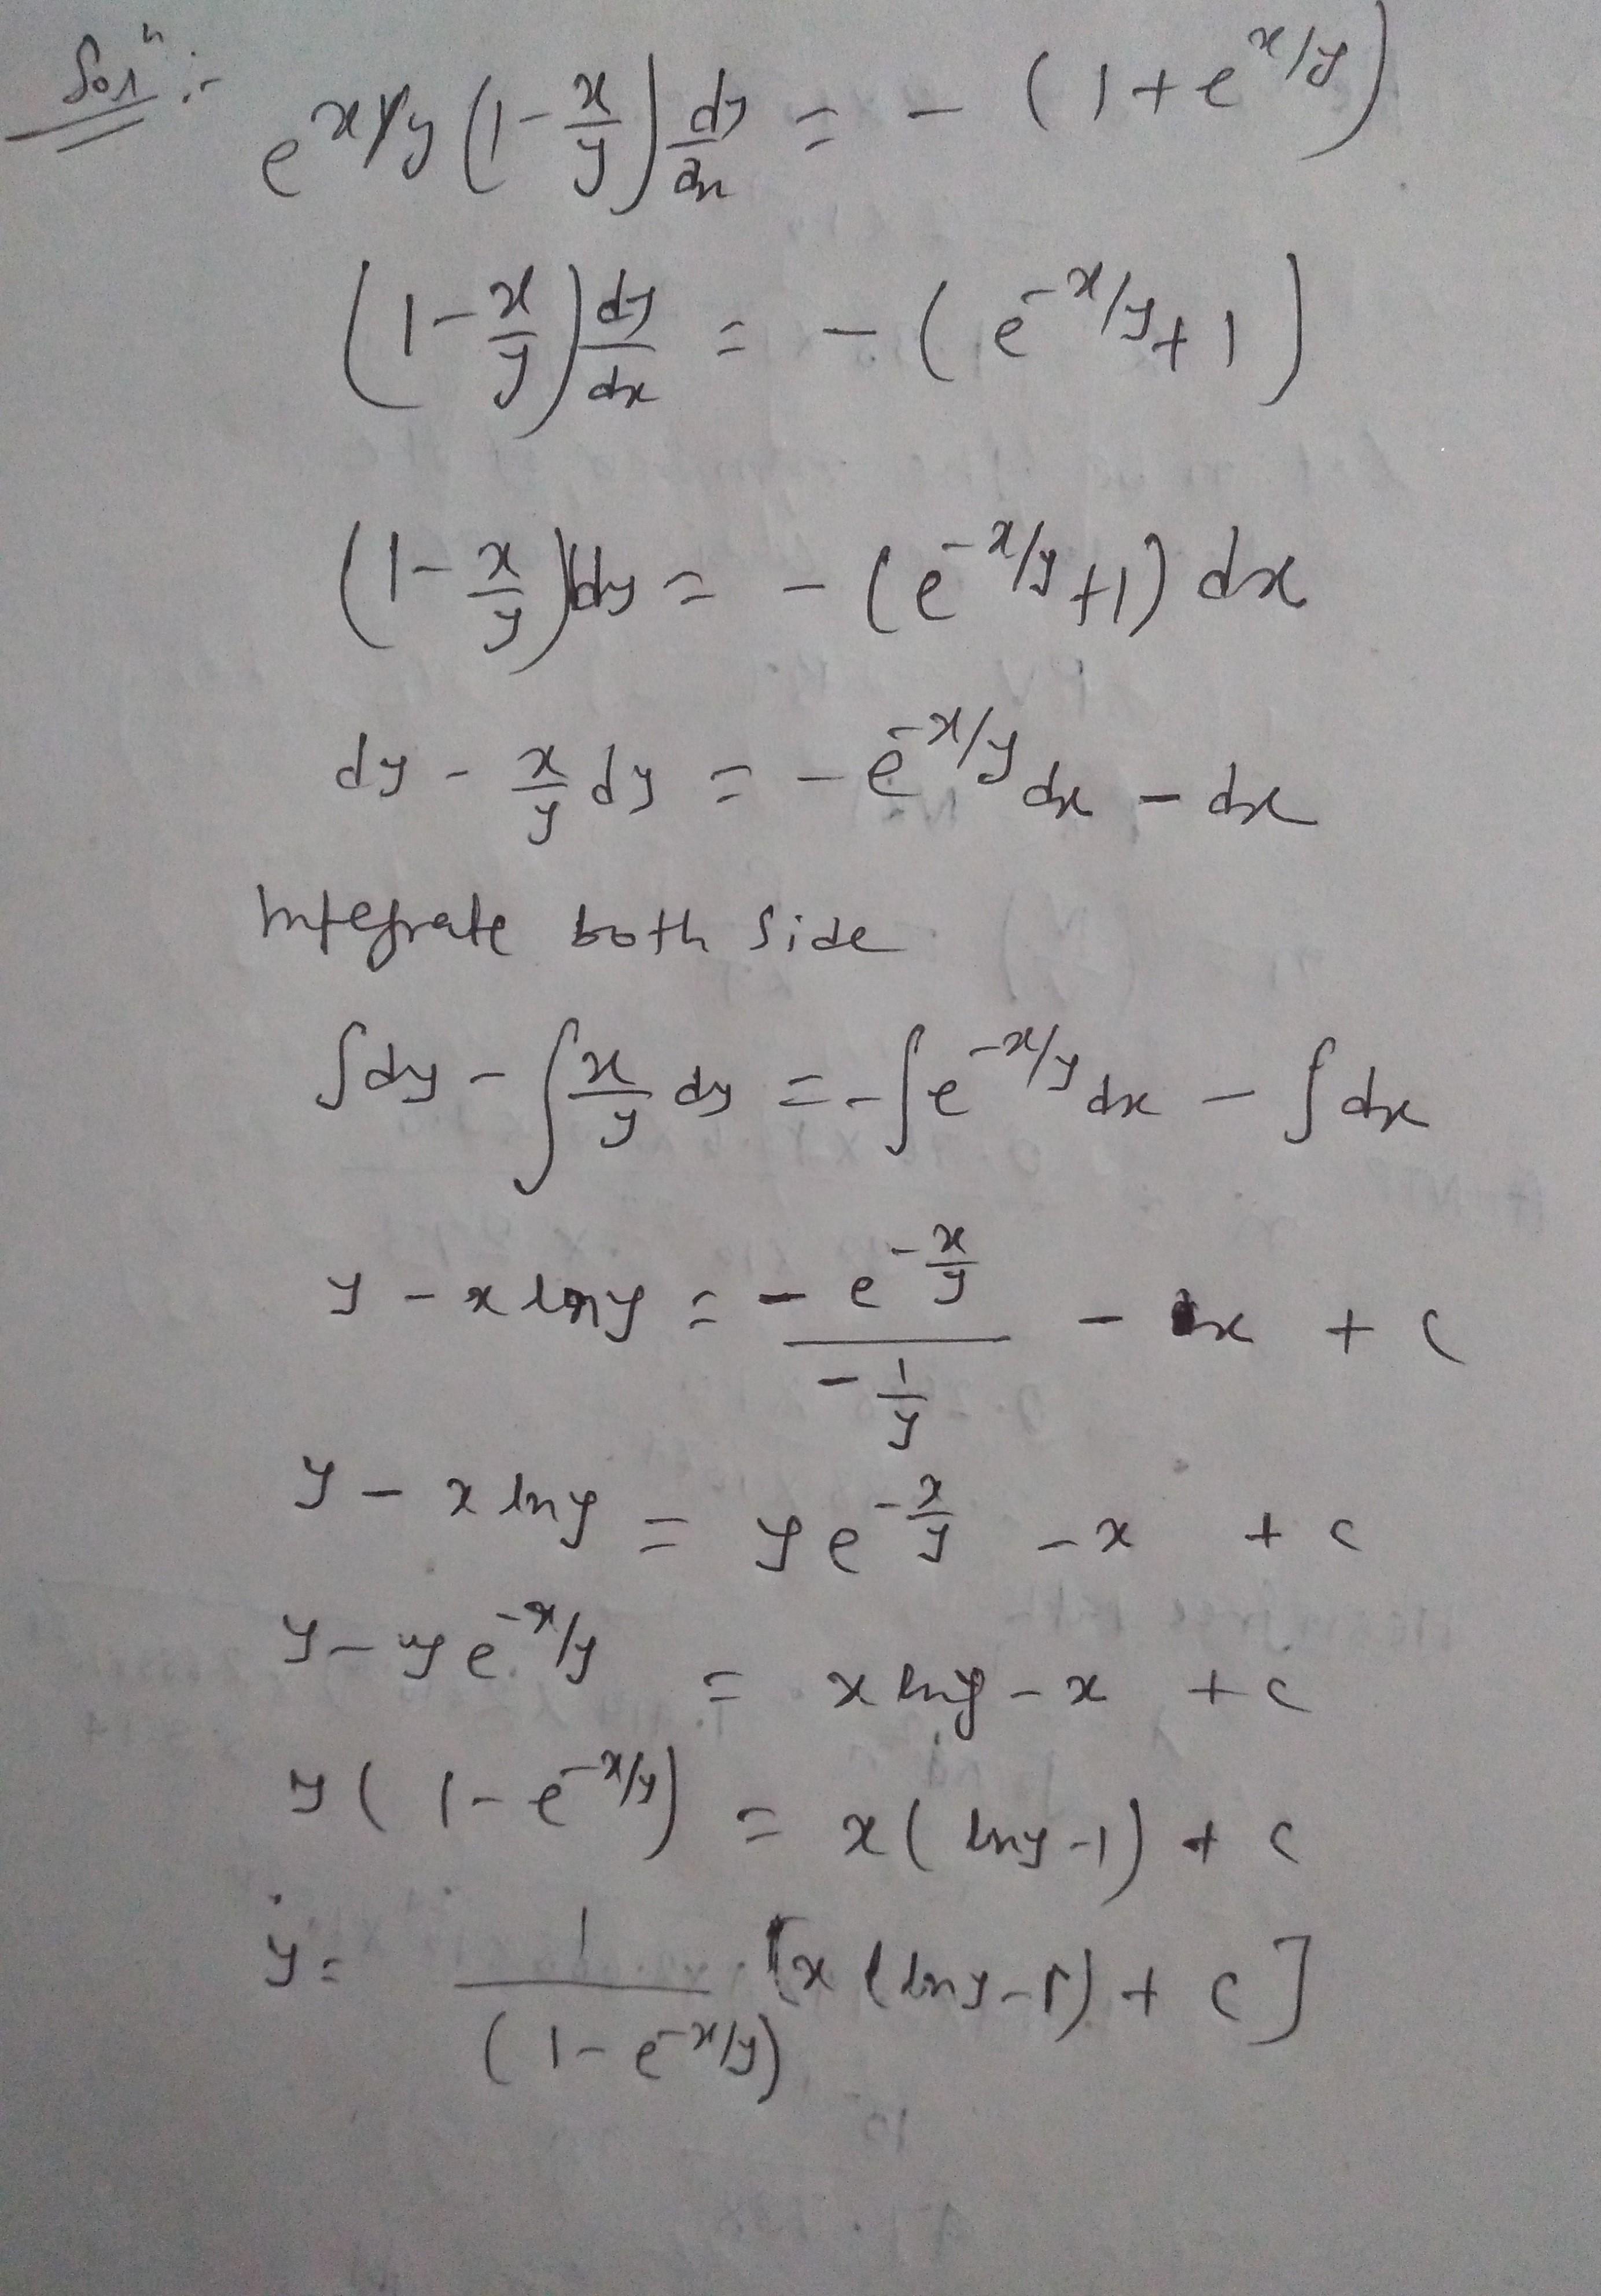 Solⁿ :-
e^{x/y} (1 - x/y) dy/dx = - (1 + e^{x/y})
(1 - x/y) dy/dx = - (e^{-x/y} + 1)
(1 - x/y) dy = - (e^{-x/y} + 1) dx
dy - x/y dy = - e^{-x/y} dx - dx
Integrate both side
∫dy - ∫ x/y dy = - ∫e^{-x/y} dx - ∫dx
y - x lny = - e^{-x/y} / (-1/y) - x + c
y - x lny = y e^{-x/y} - x + c
y - y e^{-x/y} = x lny - x + c
y (1 - e^{-x/y}) = x (lny - 1) + c
y = 1/(1 - e^{-x/y}) [x (lny - 1) + c]